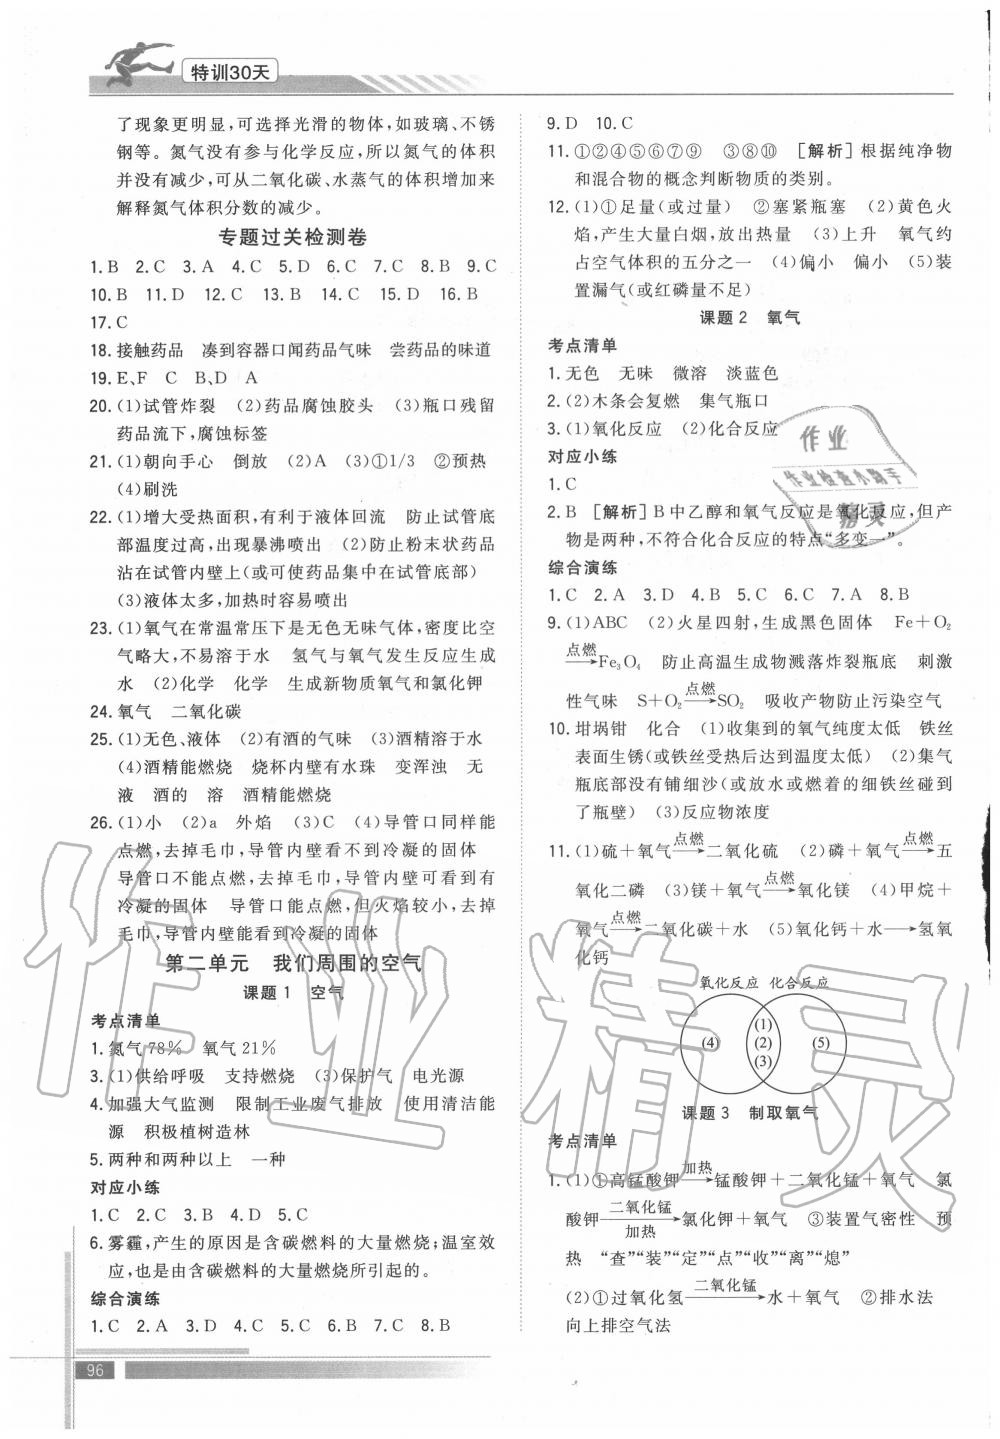 特训30天
了现象更明显,可选择光滑的物体,如玻璃、不锈
钢等。氮气没有参与化学反应,所以氮气的体积
并没有减少,可从二氧化碳、水蒸气的体积增加来
解释氮气体积分数的减少。
专题过关检测卷
1.B 2.C 3.A 4.C 5.D 6.C 7.C 8.B 9.C
10.B 11.D 12.C 13.B 14.C 15.D 16.B
17.C
18.接触药品 凑到容器口闻药品气味 尝药品的味道
19.E、F C B、D A
20.(1)试管炸裂 (2)药品腐蚀胶头 (3)瓶口残留
药品流下,腐蚀标签
21.(1)朝向手心 倒放 (2)A (3)①1/3 ②预热
(4)刷洗
22.(1)增大受热面积,有利于液体回流 防止试管底
部温度过高,出现暴沸喷出 (2)防止粉末状药品
沾在试管内壁上(或可使药品集中在试管底部)
(3)液体太多,加热时容易喷出
23.(1)氧气在常温常压下是无色无味气体,密度比空
气略大,不易溶于水 氢气与氧气发生反应生成
水 (2)化学 化学 生成新物质氧气和氯化钾
24.氧气 二氧化碳
25.(1)无色、液体 (2)有酒的气味 (3)酒精溶于水
(4)酒精能燃烧 烧杯内壁有水珠 变浑浊 无
液 酒的 溶 酒精能燃烧
26.(1)小 (2)a 外焰 (3)C (4)导管口同样能
点燃,去掉毛巾,导管内壁看不到冷凝的固体
导管口不能点燃,去掉毛巾,导管内壁可看到有
冷凝的固体 导管口能点燃,但火焰较小,去掉
毛巾,导管内壁能看到冷凝的固体
第二单元 我们周围的空气
课题1 空气
考点清单
1.氮气78% 氧气21%
3.(1)供给呼吸 支持燃烧 (3)保护气 电光源
4.加强大气监测 限制工业废气排放 使用清洁能
源 积极植树造林
5.两种和两种以上 一种
对应小练
1.C 2.C 3.B 4.D 5.C
6.雾霾,产生的原因是含碳燃料的大量燃烧;温室效
应,也是由含碳燃料的大量燃烧所引起的。
综合演练
1.C 2.A 3.D 4.C 5.C 6.B 7.C 8.B
96
9.D 10.C
11.①②④⑤⑥⑦⑨ ③⑧⑩ [解析]根据纯净物
和混合物的概念判断物质的类别。
12.(1)①足量(或过量) ②塞紧瓶塞 (2)黄色火
焰,产生大量白烟,放出热量 (3)上升 氧气约
占空气体积的五分之一 (4)偏小 偏小 (5)装
置漏气(或红磷量不足)
课题2 氧气
考点清单
1.无色 无味 微溶 淡蓝色
2.(2)木条会复燃 集气瓶口
3.(1)氧化反应 (2)化合反应
对应小练
1.C
2.B [解析]B中乙醇和氧气反应是氧化反应,但产
物是两种,不符合化合反应的特点“多变一”。
综合演练
1.C 2.A 3.D 4.B 5.C 6.C 7.A 8.B
9.(1)ABC (2)火星四射,生成黑色固体 Fe+O₂
点燃
→Fe₃O₄ 防止高温生成物溅落炸裂瓶底 刺激
性气味 S+O₂ 点燃→SO₂ 吸收产物防止污染空气
10.坩埚钳 化合 (1)收集到的氧气纯度太低 铁丝
表面生锈(或铁丝受热后达到温度太低) (2)集气
瓶底部没有铺细沙(或放水或燃着的细铁丝碰到
了瓶壁) (3)反应物浓度
11.(1)硫+氧气 点燃→二氧化硫 (2)磷+氧气 点燃→五
氧化二磷 (3)镁+氧气 点燃→氧化镁 (4)甲烷+
氧气 点燃→二氧化碳+水 (5)氧化钙+水→氢氧
化钙
氧化反应 化合反应
(4) (1) (2) (3) (5)
课题3 制取氧气
考点清单
1.(1)①高锰酸钾 加热→锰酸钾+二氧化锰+氧气 氯
酸钾 二氧化锰 加热→氯化钾+氧气 ③装置气密性 预
热 “查”“装”“定”“点”“收”“离”“熄”
(2)①过氧化氢 二氧化锰→水+氧气 ②排水法
向上排空气法
作业
作业检查小助手
精灵
作业精灵